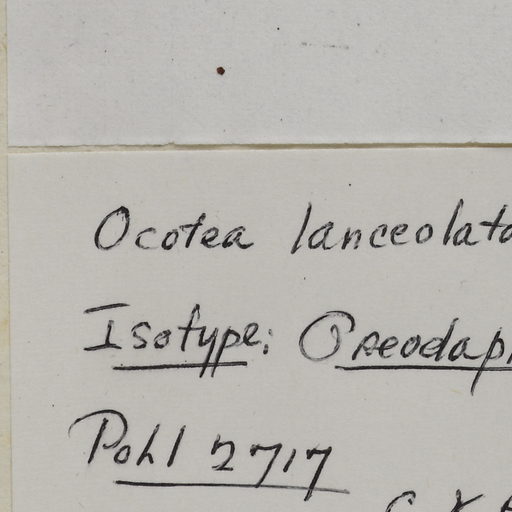 Ocotea lanceolata
Isotype: Oreodaph
Pohl 2717